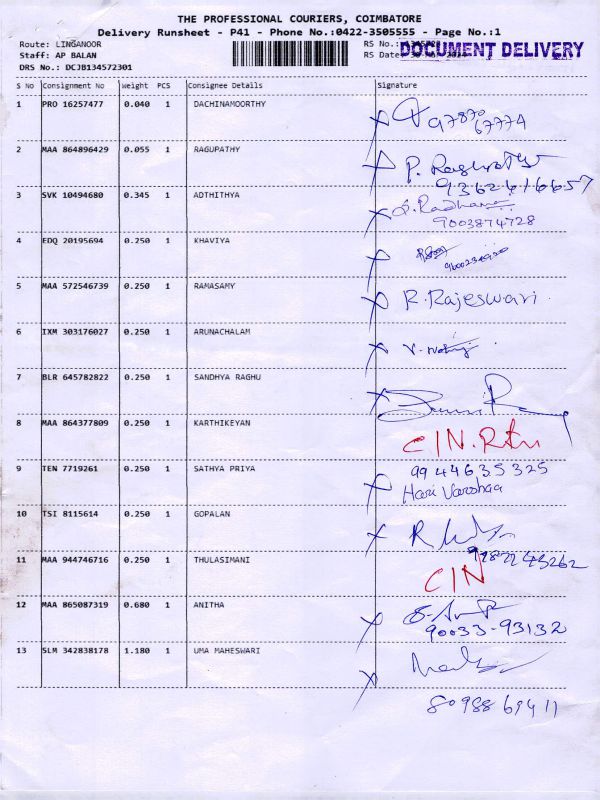 THE PROFESSIONAL COURIERS, COIMBATORE
Delivery Runsheet - P41 - Phone No.:0422-3505555 - Page No.:1
Route: LINGANOOR RS No.:
Staff: AP BALAN RS Date
DOCUMENT DELIVERY
DRS No.: DCJB134572301
S No Consignment No Weight PCS Consignee Details Signature
1 PRO 16257477 0.040 1 DACHINAMOORTHY
97870
67774
2 MAA 864896429 0.055 1 RAGUPATHY P. Ragupathy
9362416657
3 SVK 10494680 0.345 1 ADTHITHYA
9003874728
4 EDQ 20195694 0.250 1 KHAVIYA
5 MAA 572546739 0.250 1 RAMASAMY R. Rajeswari
6 IXM 303176027 0.250 1 ARUNACHALAM
7 BLR 645782822 0.250 1 SANDHYA RAGHU
8 MAA 864377809 0.250 1 KARTHIKEYAN C/N. Rtn
9 TEN 7719261 0.250 1 SATHYA PRIYA 9944635325
Hari Varshaa
10 TSI 8115614 0.250 1 GOPALAN
11 MAA 944746716 0.250 1 THULASIMANI C/N
12 MAA 865087319 0.680 1 ANITHA
90033-93132
13 SLM 342838178 1.180 1 UMA MAHESWARI
8098869411